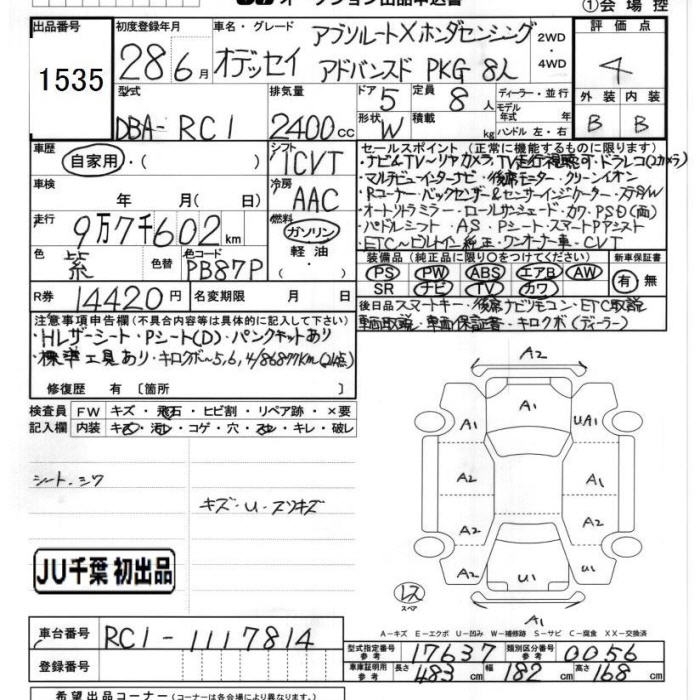 オークション出品申込書
①会場控
出品番号 1535
初度登録年月 28年6月
車名・グレード オデッセイ アブソルートXホンダセンシング
アドバンスド PKG 8人
2WD・4WD
評価点 4
外装 B 内装 B
型式 DBA-RC1
排気量 2400cc
ドア 5 形状 W
定員 8人 積載 kg
ディーラー・並行
モデル年式 年
ハンドル 左・右
車歴 自家用・( )
シフト ICVT
車検 年 月( 日)
冷房 AAC
走行 9万7千602km
燃料 ガソリン 軽油 ・( )
色 紫 色替 色コード PB87P
R券 14420円 名変期限 月 日
セールスポイント (正常に機能するものに限ります)
・ナビ&TV〜リヤカメラ・TV走行視聴可・ドラレコ(2カメラ)
・マルチビューインターナビ・後席モニター・クリーンイオン
・Rコーナー・バックセンサー&センサーインジケーター・ステアSW
・オートリトラミラー・ロールサンシェード・カワ・PSD(両)
・パドルシフト・AS・Pシート・スマートPアシスト
・ETC〜ビルトイン純正・ワンオーナー車・CVT
装備品 (純正品に限り○をつけてください)
PS PW ABS エアB AW
SR ナビ TV カワ
新車保証書 有・無
後日品 スマートキー・後席ナビリモコン・ETC取説
車両取説・車両保証書・キロクボ(ディーラー)
注意事項申告欄 (不具合内容等は具体的に記入して下さい)
・Hレザーシート・Pシート(D)・パンクキットあり
・標準工具あり・キロクボ〜5,6,4/86877km(24点)
修復歴 有 〔箇所 〕
検査員記入欄
FW キズ・飛石・ヒビ割・リペア跡・×要
内装 キズ・汚レ・コゲ・穴・スレ・キレ・破レ
シート・シワ
キズ・U・スリキズ
JU千葉 初出品
A2
A1
A1 UA1
A2 A1
A2 A2
A2 U1 U1
A1
レス スペア
A-キズ E-エクボ U-凹み W-補修跡 S-サビ C-腐食 XX-交換済
車台番号 RC1-1117814
登録番号
型式指定番号 参考 17637 類別区分番号 参考 0056
車庫証明用 参考 長さ 483cm 幅 182cm 高さ 168cm
希望出品コーナー (コーナーは各会場により異なります)